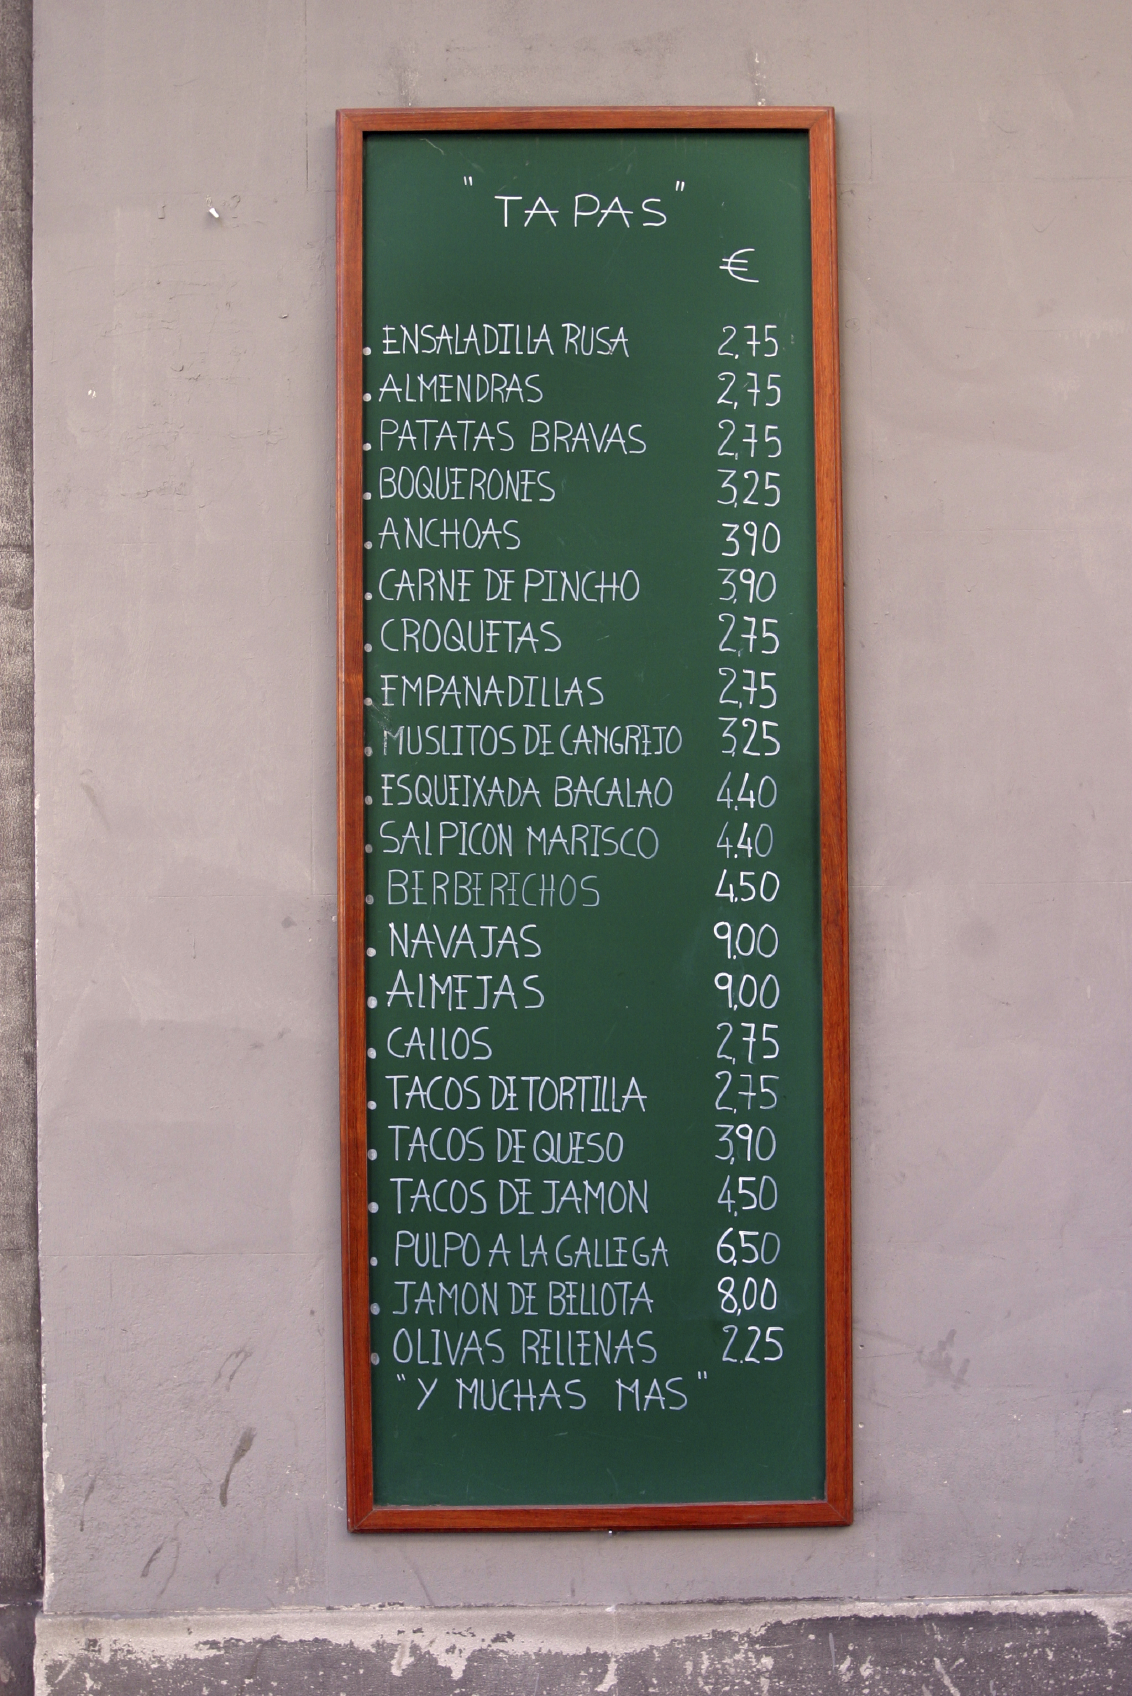 " TAPAS "
€
. ENSALADILLA RUSA 2,75
. ALMENDRAS 2,75
. PATATAS BRAVAS 2,75
. BOQUERONES 3,25
. ANCHOAS 3,90
. CARNE DE PINCHO 3,90
. CROQUETAS 2,75
. EMPANADILLAS 2,75
. MUSLITOS DE CANGREJO 3,25
. ESQUEIXADA BACALAO 4.40
. SALPICON MARISCO 4.40
. BERBERICHOS 4.50
. NAVAJAS 9.00
. ALMEJAS 9,00
. CALLOS 2,75
. TACOS DE TORTILLA 2,75
. TACOS DE QUESO 3,90
. TACOS DE JAMON 4,50
. PULPO A LA GALLEGA 6,50
. JAMON DE BELLOTA 8,00
. OLIVAS RELLENAS 2.25
" Y MUCHAS MAS "